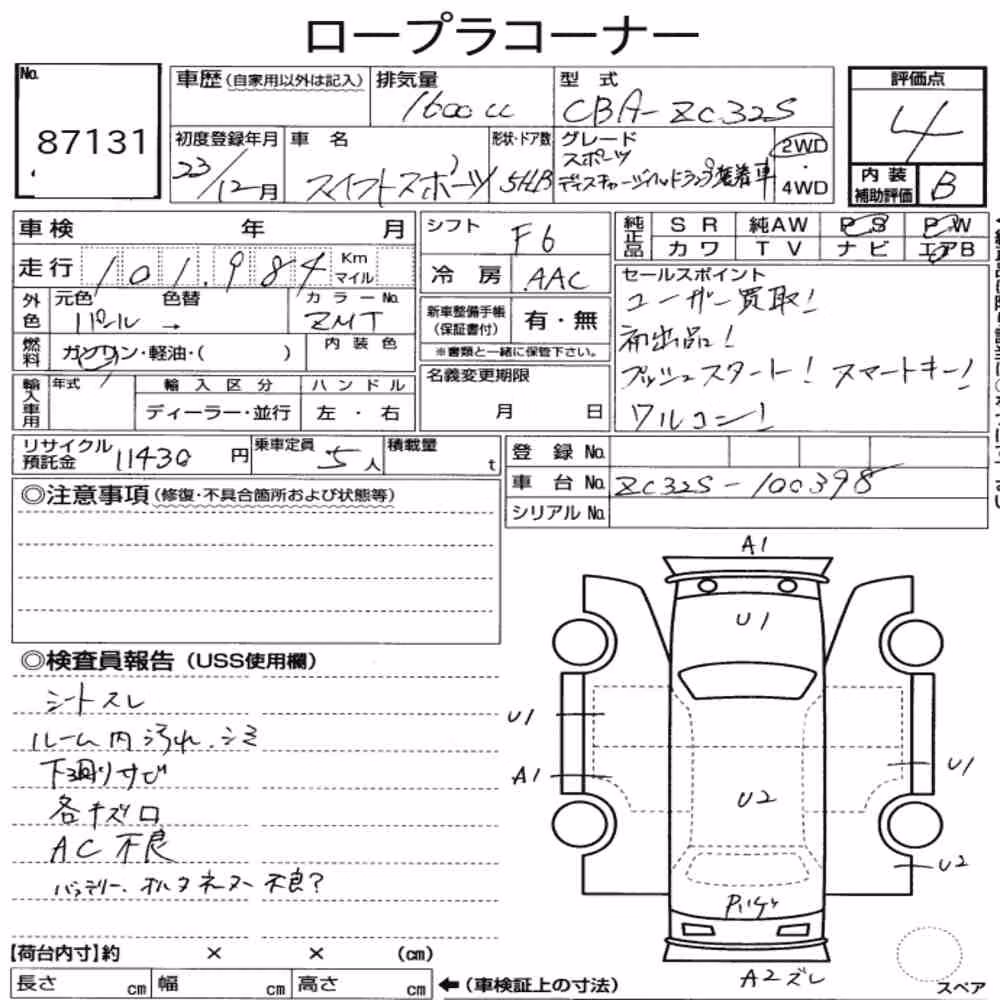 ロープラコーナー
No.
87131
車歴(自家用以外は記入)
排気量
1600cc
型 式
CBA-ZC32S
評価点
4
初度登録年月
23/12月
車 名
スイフトスポーツ
形状・ドア数
5HB
グレード
スポーツ
ディスチャージヘッドランプ装着車
2WD
・
4WD
内 装
補助評価
B
車検 年 月
走行 101,984 Km
マイル
シフト
F6
冷 房
AAC
純正品
S R 純AW P S P W
カ ワ T V ナ ビ エアB
外色
元色 色替
パール →
カラーNo.
ZMT
燃料
ガソリン・軽油・( )
内 装 色
新車整備手帳
(保証書付)
有・無
※書類と一緒に保管下さい。
セールスポイント
ユーザー買取!
初出品!
プッシュスタート! スマートキー!
ワルコン!
輸入車用
年式
輸 入 区 分
ディーラー・並行
ハ ン ド ル
左 ・ 右
名義変更期限
月 日
リサイクル
預託金
11430 円
乗車定員
5人
積載量
t
登 録 No.
車 台 No. ZC32S-100398
シリアル No.
◎注意事項(修復・不具合箇所および状態等)
◎検査員報告(USS使用欄)
シートスレ
ルーム内汚れ、シミ
下廻りサビ
各キズ凹
AC不良
バッテリー、オルタネーター不良?
A1
U1
U1
A1
U1
U2
U2
A2ズレ
スペア
【荷台内寸】約 × × (cm)
長さ cm 幅 cm 高さ cm ←(車検証上の寸法)